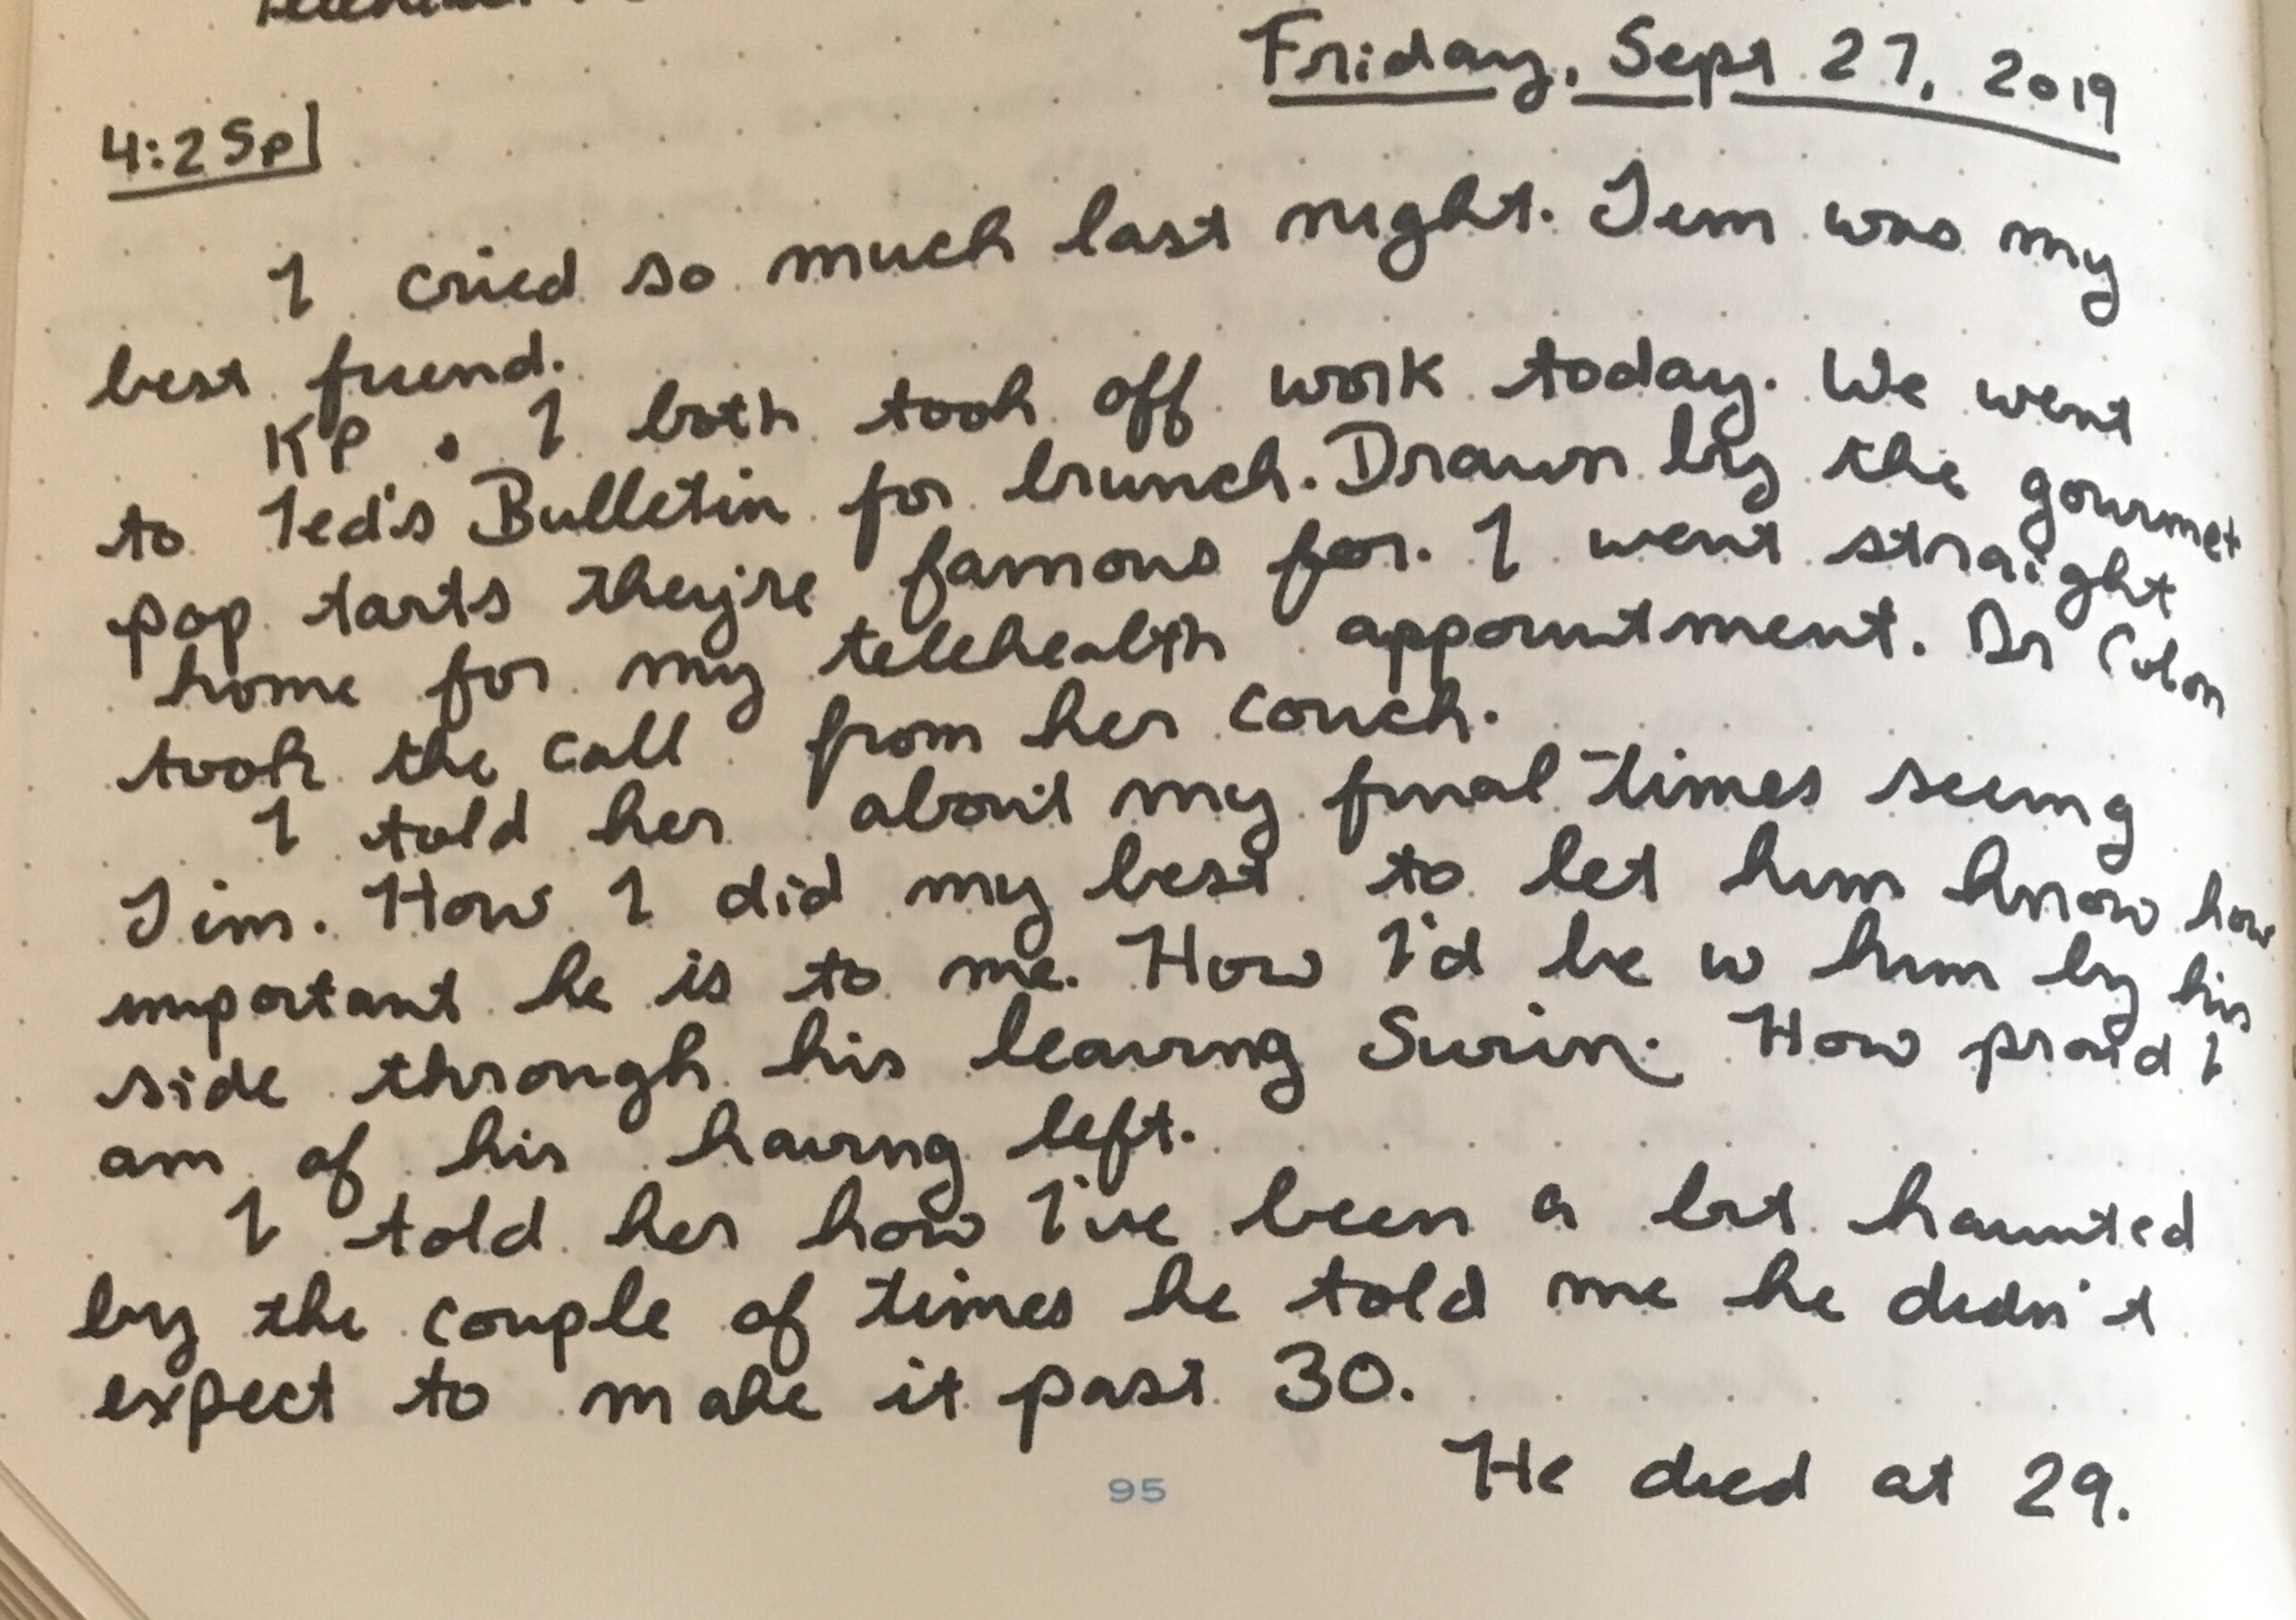 Friday, Sept 27, 2019
4:25p
I cried so much last night. Jim was my
best friend.
KP • I both took off work today. We went
to Ted's Bulletin for brunch. Drawn by the gourmet
pop tarts they're famous for. I went straight
home for my telehealth appointment. Dr Colon
took the call from her couch.
I told her about my final times seeing
Jim. How I did my best to let him know how
important he is to me. How I'd be w him by his
side through his leaving Swin. How proud I
am of his having left.
I told her how I've been a bit haunted
by the couple of times he told me he didn't
expect to make it past 30.
He died at 29.
95